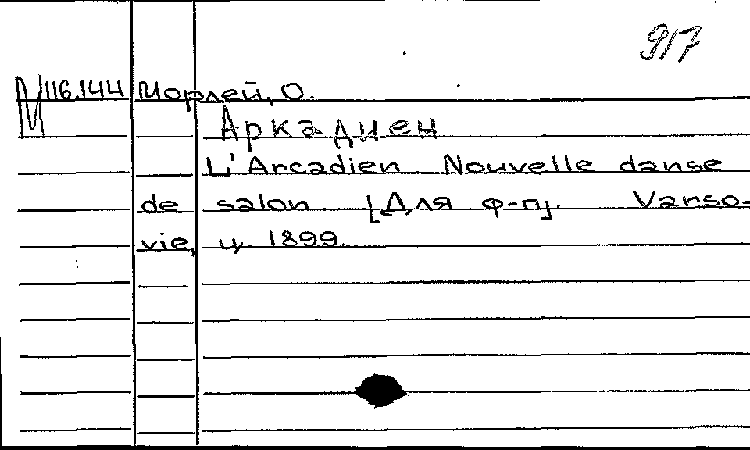 917
М 116.144 Морлей, О.
Аркадиен
L'Arcadien Nouvelle danse
de salon. [Для ф-п]. Varso-
vie, ц. 1899.